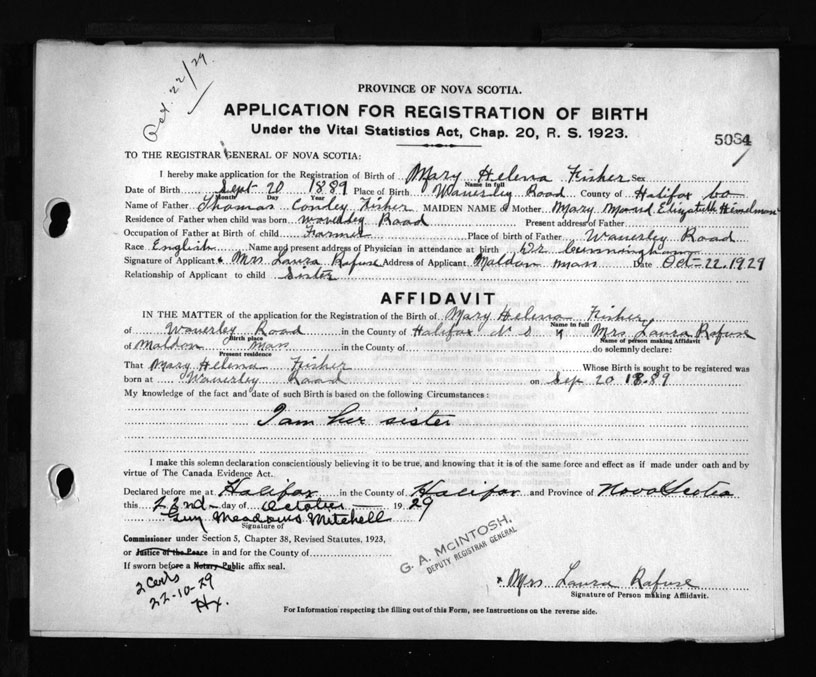 Oct. 22/29.
PROVINCE OF NOVA SCOTIA.
APPLICATION FOR REGISTRATION OF BIRTH
Under the Vital Statistics Act, Chap. 20, R. S. 1923.
5084
TO THE REGISTRAR GENERAL OF NOVA SCOTIA:
I hereby make application for the Registration of Birth of Mary Helena Fisher Sex
Name in full
Date of Birth Sept 20 1889 Place of Birth Waverley Road County of Halifax Co
Month Day Year
Name of Father Thomas Conley Fisher MAIDEN NAME of Mother Mary Maud Elizabeth
Residence of Father when child was born Waverley Road Present address of Father
Occupation of Father at Birth of child Farmer Place of birth of Father Waverley Road
Race English Name and present address of Physician in attendance at birth Dr Cunningham
Signature of Applicant x Mrs Laura Rafuse Address of Applicant Maldon Mass Date Oct-22.1929
Relationship of Applicant to child Sister
AFFIDAVIT
IN THE MATTER of the application for the Registration of the Birth of Mary Helena Fisher
Name in full
of Waverley Road in the County of Halifax N S I, Mrs Laura Rafuse
Birth place Name of person making Affidavit
of Maldon Mass in the County of do solemnly declare:
Present residence
That Mary Helena Fisher Whose Birth is sought to be registered was
born at Waverley Road on Sep 20 1889
My knowledge of the fact and date of such Birth is based on the following Circumstances:
I am her sister
I make this solemn declaration conscientiously believing it to be true, and knowing that it is of the same force and effect as if made under oath and by
virtue of The Canada Evidence Act.
Declared before me at Halifax in the County of Halifax and Province of Nova Scotia
this 22nd day of October 1929
Guy Meadows Mitchell
Signature of
Commissioner under Section 5, Chapter 38, Revised Statutes, 1923,
or Justice of the Peace in and for the County of
If sworn before a Notary Public affix seal.
G. A. McINTOSH,
DEPUTY REGISTRAR GENERAL
2 Certs
22-10-29
Hx.
x Mrs Laura Rafuse
Signature of Person making Affidavit.
For Information respecting the filling out of this Form, see Instructions on the reverse side.